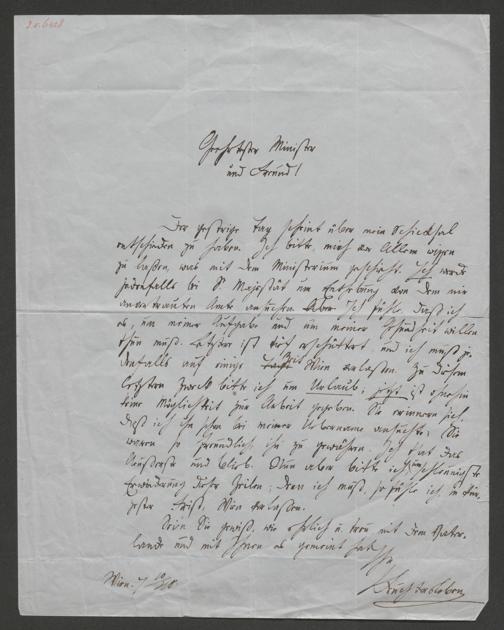 Geehrtester Minister
und Freund!
Der gestrige Tag scheint über mein Schicksal
entschieden zu haben. Ich bitte, mich vor Allem wissen
zu laßen, was mit dem Ministerium geschieht. Ich werde
jedenfalls bei Sr Majestät um Enthebung von dem mir
anvertrauten Amte ansuchen. Ich fühle, daß ich
es, um meiner Aufgabe und um meiner Gesundheit willen
thun muß. Letztere ist tief erschüttert, und ich muß je-
denfalls auf einige Zeit Wien verlassen. Zu diesem
letzten Zweck bitte ich um Urlaub; jetzt ist ohnehin
keine Möglichkeit zur Arbeit gegeben. Sie erinnern sich,
daß ich ihn schon bei meiner Übernahme ansuchte; Sie
waren so freundlich, ihn zu gewähren. Ich that das
Äußerste und blieb. Nun aber bitte ich um schleunigste
Erwiderung dieser Zeilen; denn ich muß, so fühle ich, in kür-
zester Frist, Wien verlassen.
Seien Sie gewiß, wie ehrlich u. treu mit dem Vater-
lande und mit Ihnen es gemeint hat
Ihr
Feuchtersleben
Wien